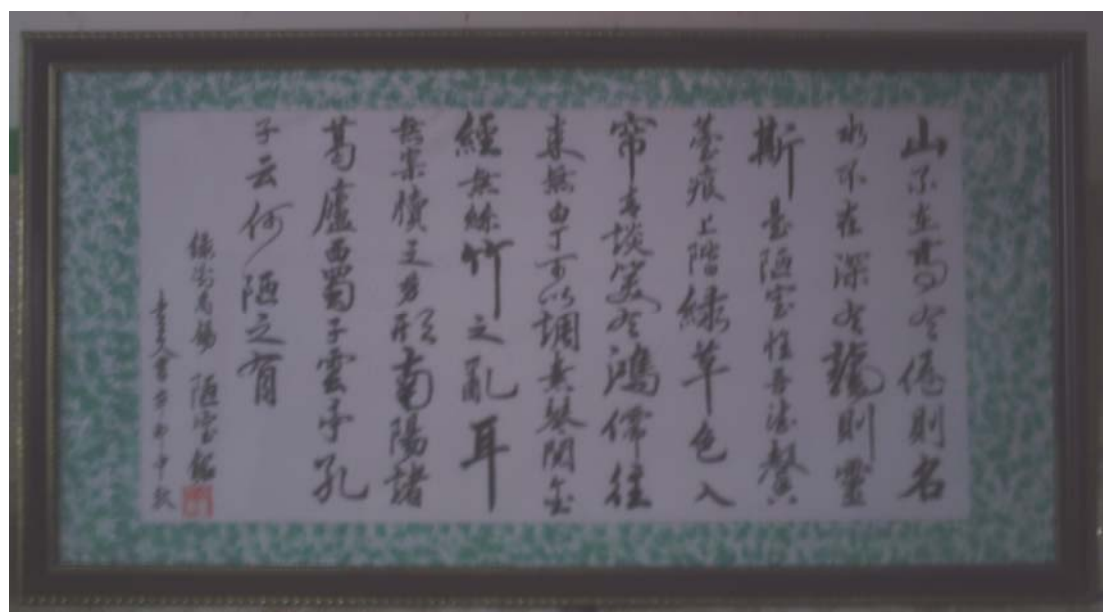 山不在高有僊則名
水不在深有龍則靈
斯是陋室惟吾德馨
苔痕上階綠草色入
帘青談笑有鴻儒往
來無白丁可以調素琴閱金
經無絲竹之亂耳
無案牘之勞形南陽諸
葛廬西蜀子雲亭孔
子云何陋之有
錄劉禹錫 陋室銘
書辛卯中秋